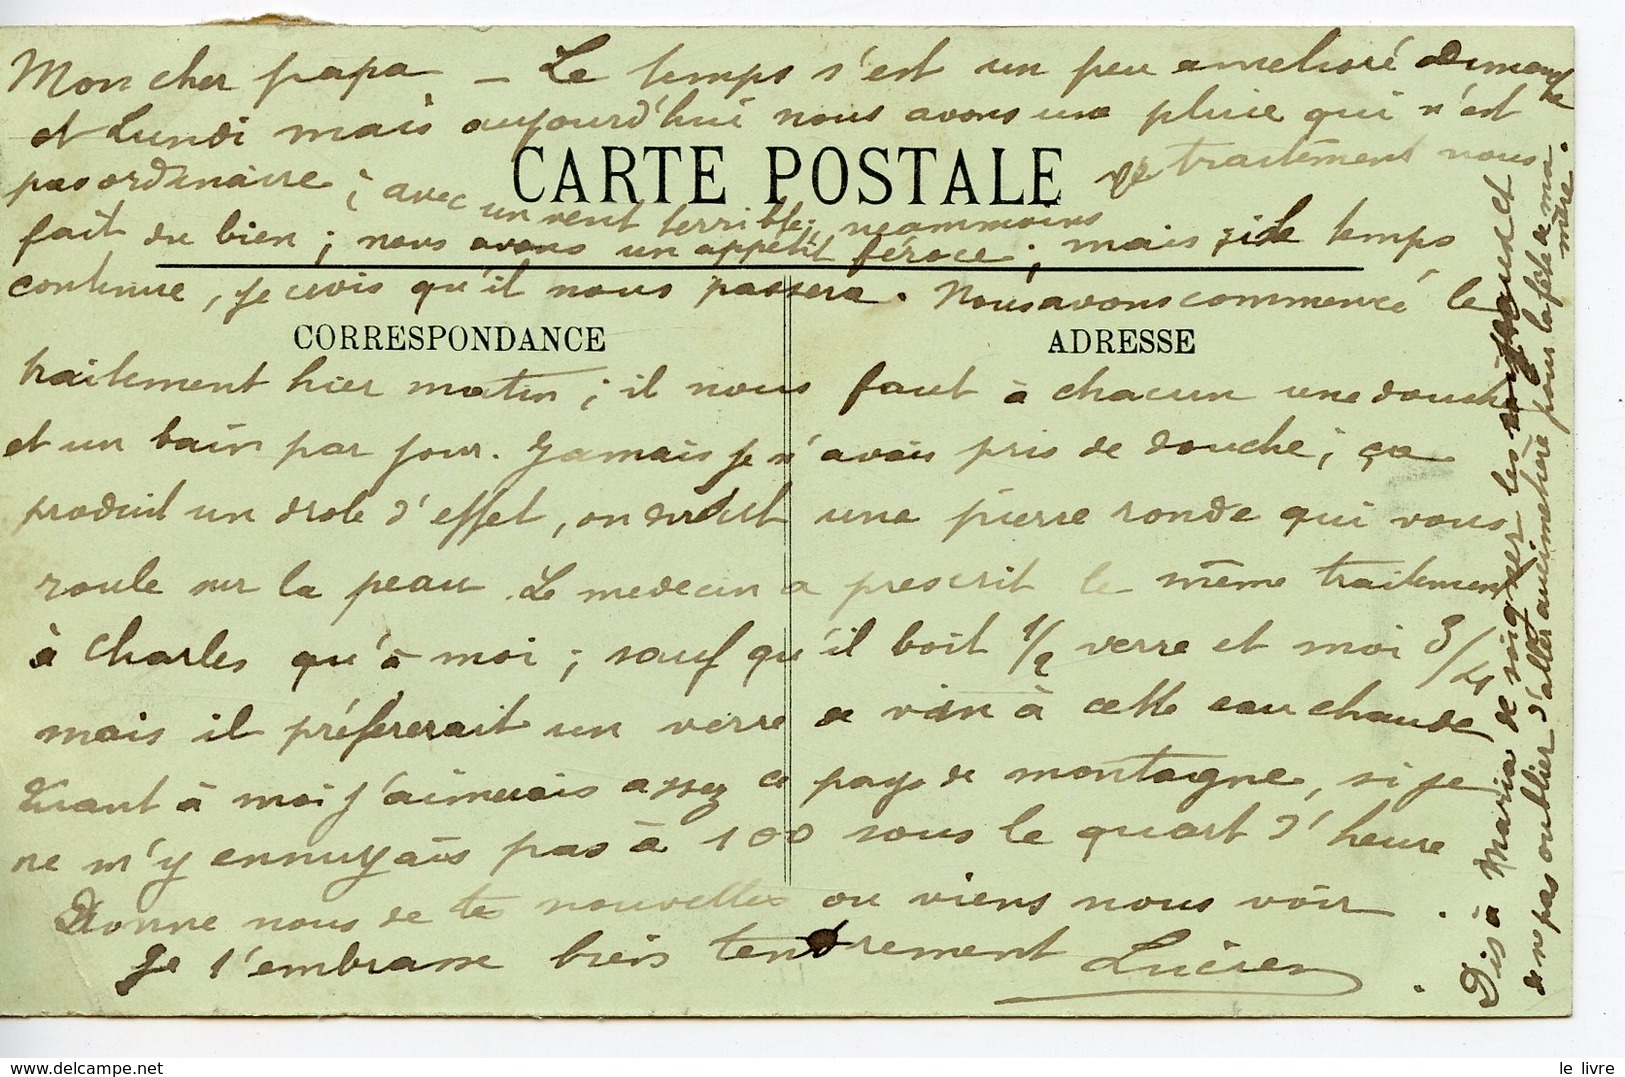 Mon cher papa – Le temps s'est un peu amelioré Dimanche
et Lundi mais aujourd'hui nous avons une pluie qui n'est
pas ordinaire ; avec un vent terrible ; neammoins ce traitement nous
CARTE POSTALE
fait du bien ; nous avons un appétit féroce ; mais si le temps
continue, je crois qu'il nous passera. Nous avons commencé le
CORRESPONDANCE
ADRESSE
traitement hier matin ; il nous faut à chacun une douche
et un bain par jour. Jamais je n'avais pris de douche ; ça
produit un drole d'effet, on dirait une pierre ronde qui vous
roule sur la peau. Le medecin a prescrit le même traitement
à Charles qu'à moi ; sauf qu'il boit 1/2 verre et moi 3/4
mais il préfererait un verre de vin à cette eau chaude
Quant à moi j'aimerais assez ce pays de montagne, si je
ne m'y ennuyais pas à 100 sous le quart d'heure
Donne nous de tes nouvelles ou viens nous voir .
Je t'embrasse bien tendrement Lucien .
Dis à Maria de soigner les et
de ne pas oublier d'aller au cimetière pour la fête de ma
mère.
le livre